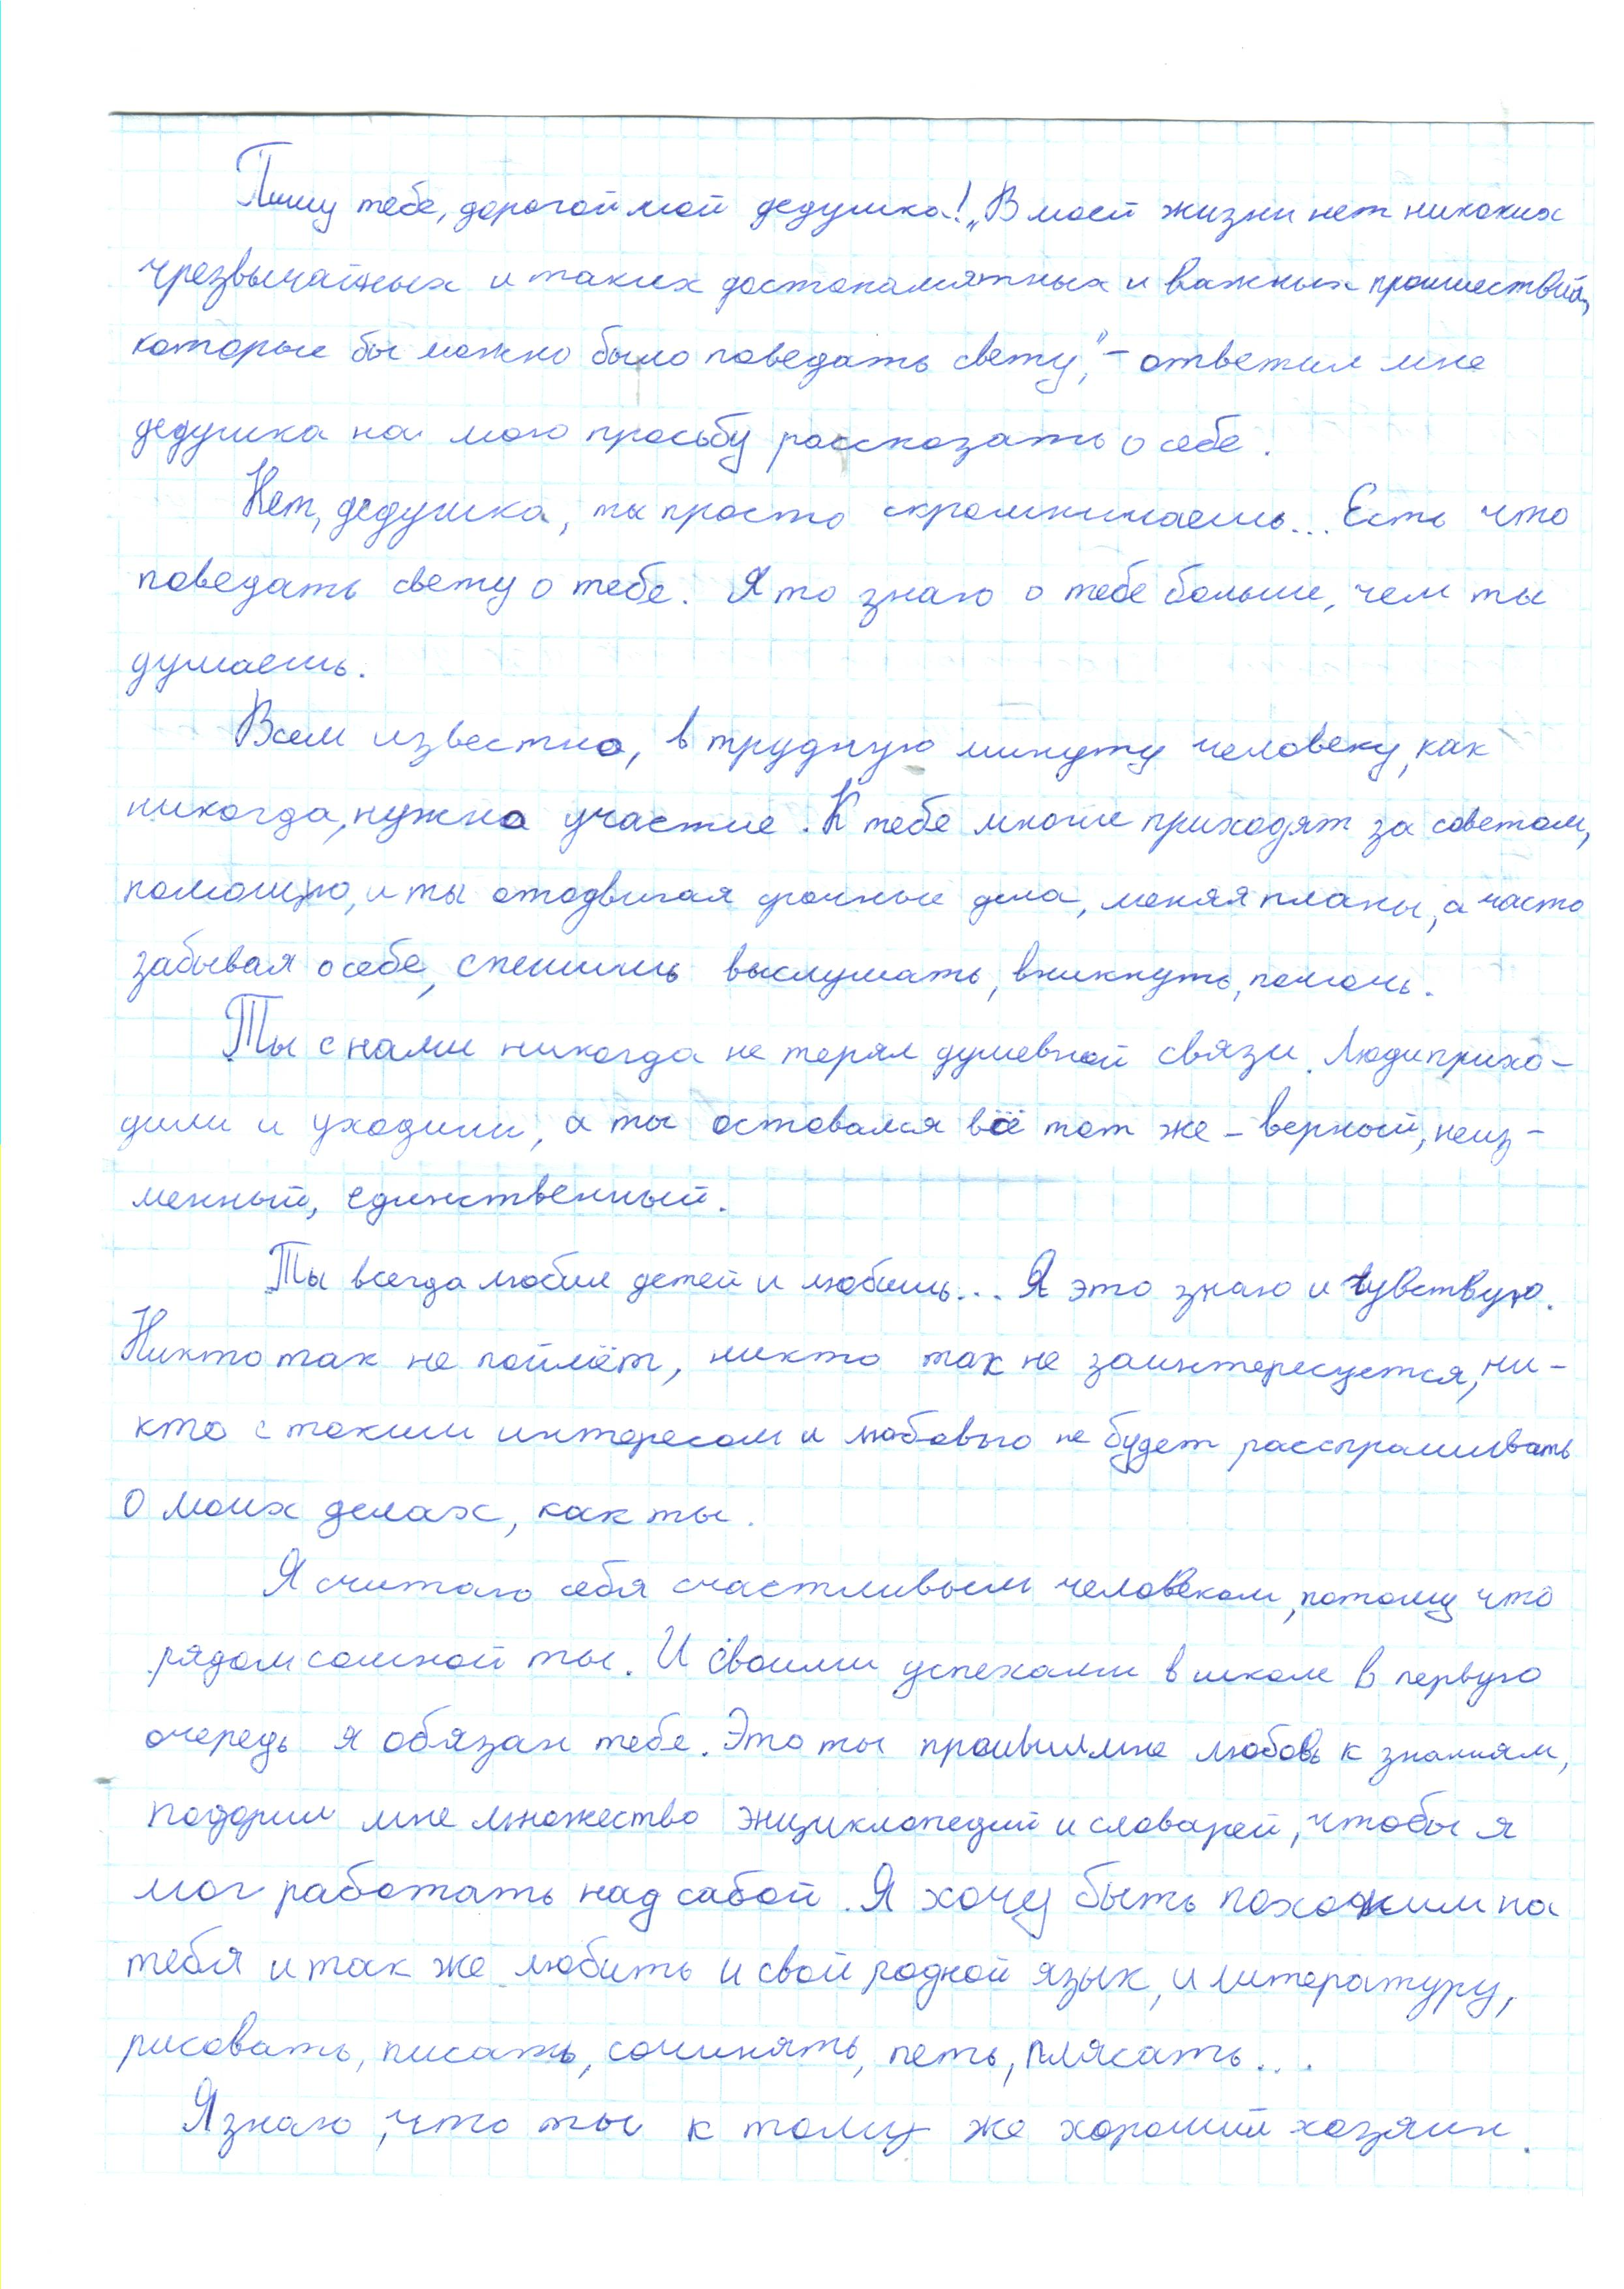 Пишу тебе, дорогой мой дедушка! „В моей жизни нет никаких
чрезвычайных и таких достопамятных и важных происшествий,
которые бы можно было поведать свету", - ответил мне
дедушка на мою просьбу рассказать о себе.
Нет, дедушка, ты просто скромничаешь... Есть что
поведать свету о тебе. Я то знаю о тебе больше, чем ты
думаешь.
Всем известно, в трудную минуту человеку, как
никогда, нужно участие. К тебе многие приходят за советом,
помощью, и ты отодвигая срочные дела, меняя планы, а часто
забывая о себе, спешишь выслушать, вникнуть, помочь.
Ты с нами никогда не терял душевной связи. Люди прихо-
дили и уходили, а ты оставался всё тот же - верный, неиз-
менный, единственный.
Ты всегда любил детей и любишь... Я это знаю и чувствую.
Никто так не поймёт, никто так не заинтересуется, ни-
кто с таким интересом и любовью не будет расспрашивать
о моих делах, как ты.
Я считаю себя счастливым человеком, потому что
рядом со мной ты. И своими успехами в школе в первую
очередь я обязан тебе. Это ты привил мне любовь к знаниям,
подарил мне множество энциклопедий и словарей, чтобы я
мог работать над сабой. Я хочу быть похожим на
тебя и так же любить и свой родной язык, и литературу,
рисовать, писать, сочинять, петь, плясать...
Я знаю, что ты к тому же хороший хозяин.